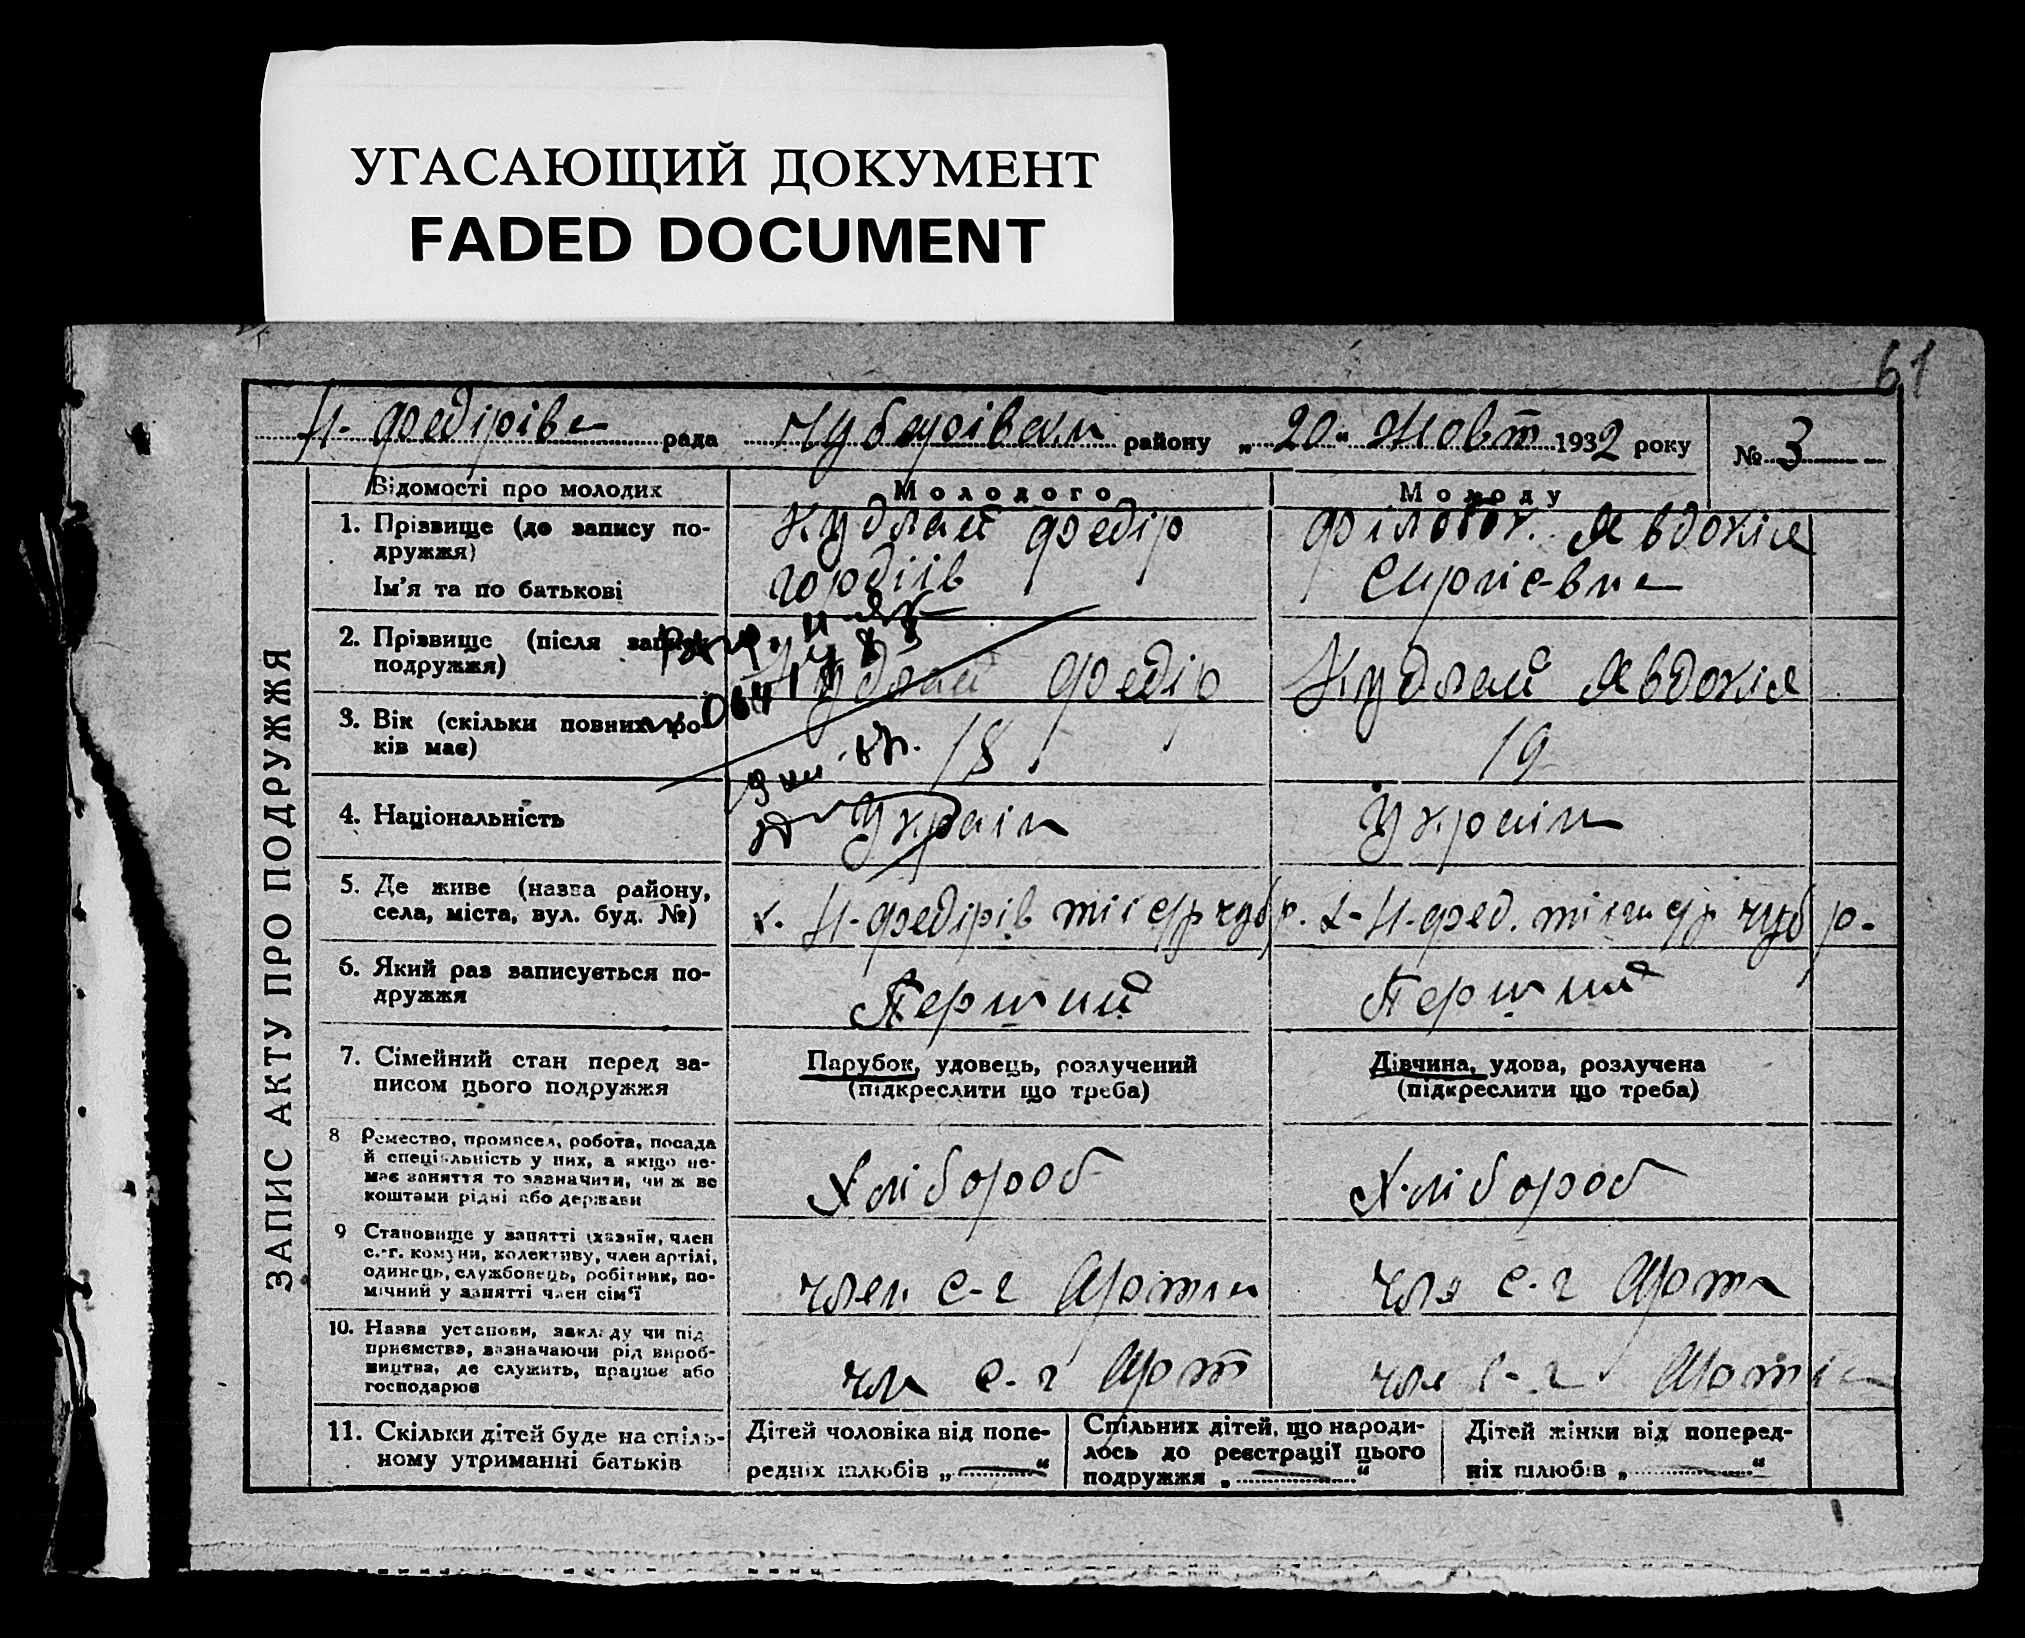 УГАСАЮЩИЙ ДОКУМЕНТ
FADED DOCUMENT
61
Н-Федірівс рада Чубарівськ району „20“ Жовт 1932 року № 3
ЗАПИС АКТУ ПРО ПОДРУЖЖЯ
Відомості про молодих Молодого Молоду
1. Прізвище (до запису по-
дружжя)
Ім'я та по батькові
Кудлай Федір
Гордіів
Явдокія
Сиргіевна
2. Прізвище (після запису
подружжя)
Кудлай Федір
Кудлай Явдокія
3. Вік (скільки повних ро-
ків має)
18
19
4. Національність
Україн
Україн
5. Де живе (назва району,
села, міста, вул. буд. №)
х. Н-Федірів чуб р.
х-Н-Фед. чуб р.
6. Який раз записується по-
дружжя
Перший
Перший
7. Сімейний стан перед за-
писом цього подружжя
Парубок, удовець, розлучений
(підкреслити що треба)
Дівчина, удова, розлучена
(підкреслити що треба)
8 Ремество, промисел, робота, посада
й спеціяльність у них, а якщо не-
має заняття то зазначити, чи ж ве
коштами рідні або держави
Хлібороб
Хлібороб
9 Становище у занятті (хазяїн, член
с.-г. комуни, колективу, член артілі,
одинець, службовець, робітник, по-
мічний у занятті член сім'ї
член с-г Артіи
чле с-г Арти
10. Назва установи, закладу чи під
приємства, зазначаючи рід вироб-
ництва, де служить, працює або
господарює
чле с-г Арт
чле с-г Артіи
11. Скільки дітей буде на спіль-
ному утриманні батьків
Дітей чоловіка від попе-
редніх шлюбів „ — “
Спільних дітей, що народи-
лось до реєстрації цього
подружжя „ — “
Дітей жінки від поперед-
ніх шлюбів „ — “